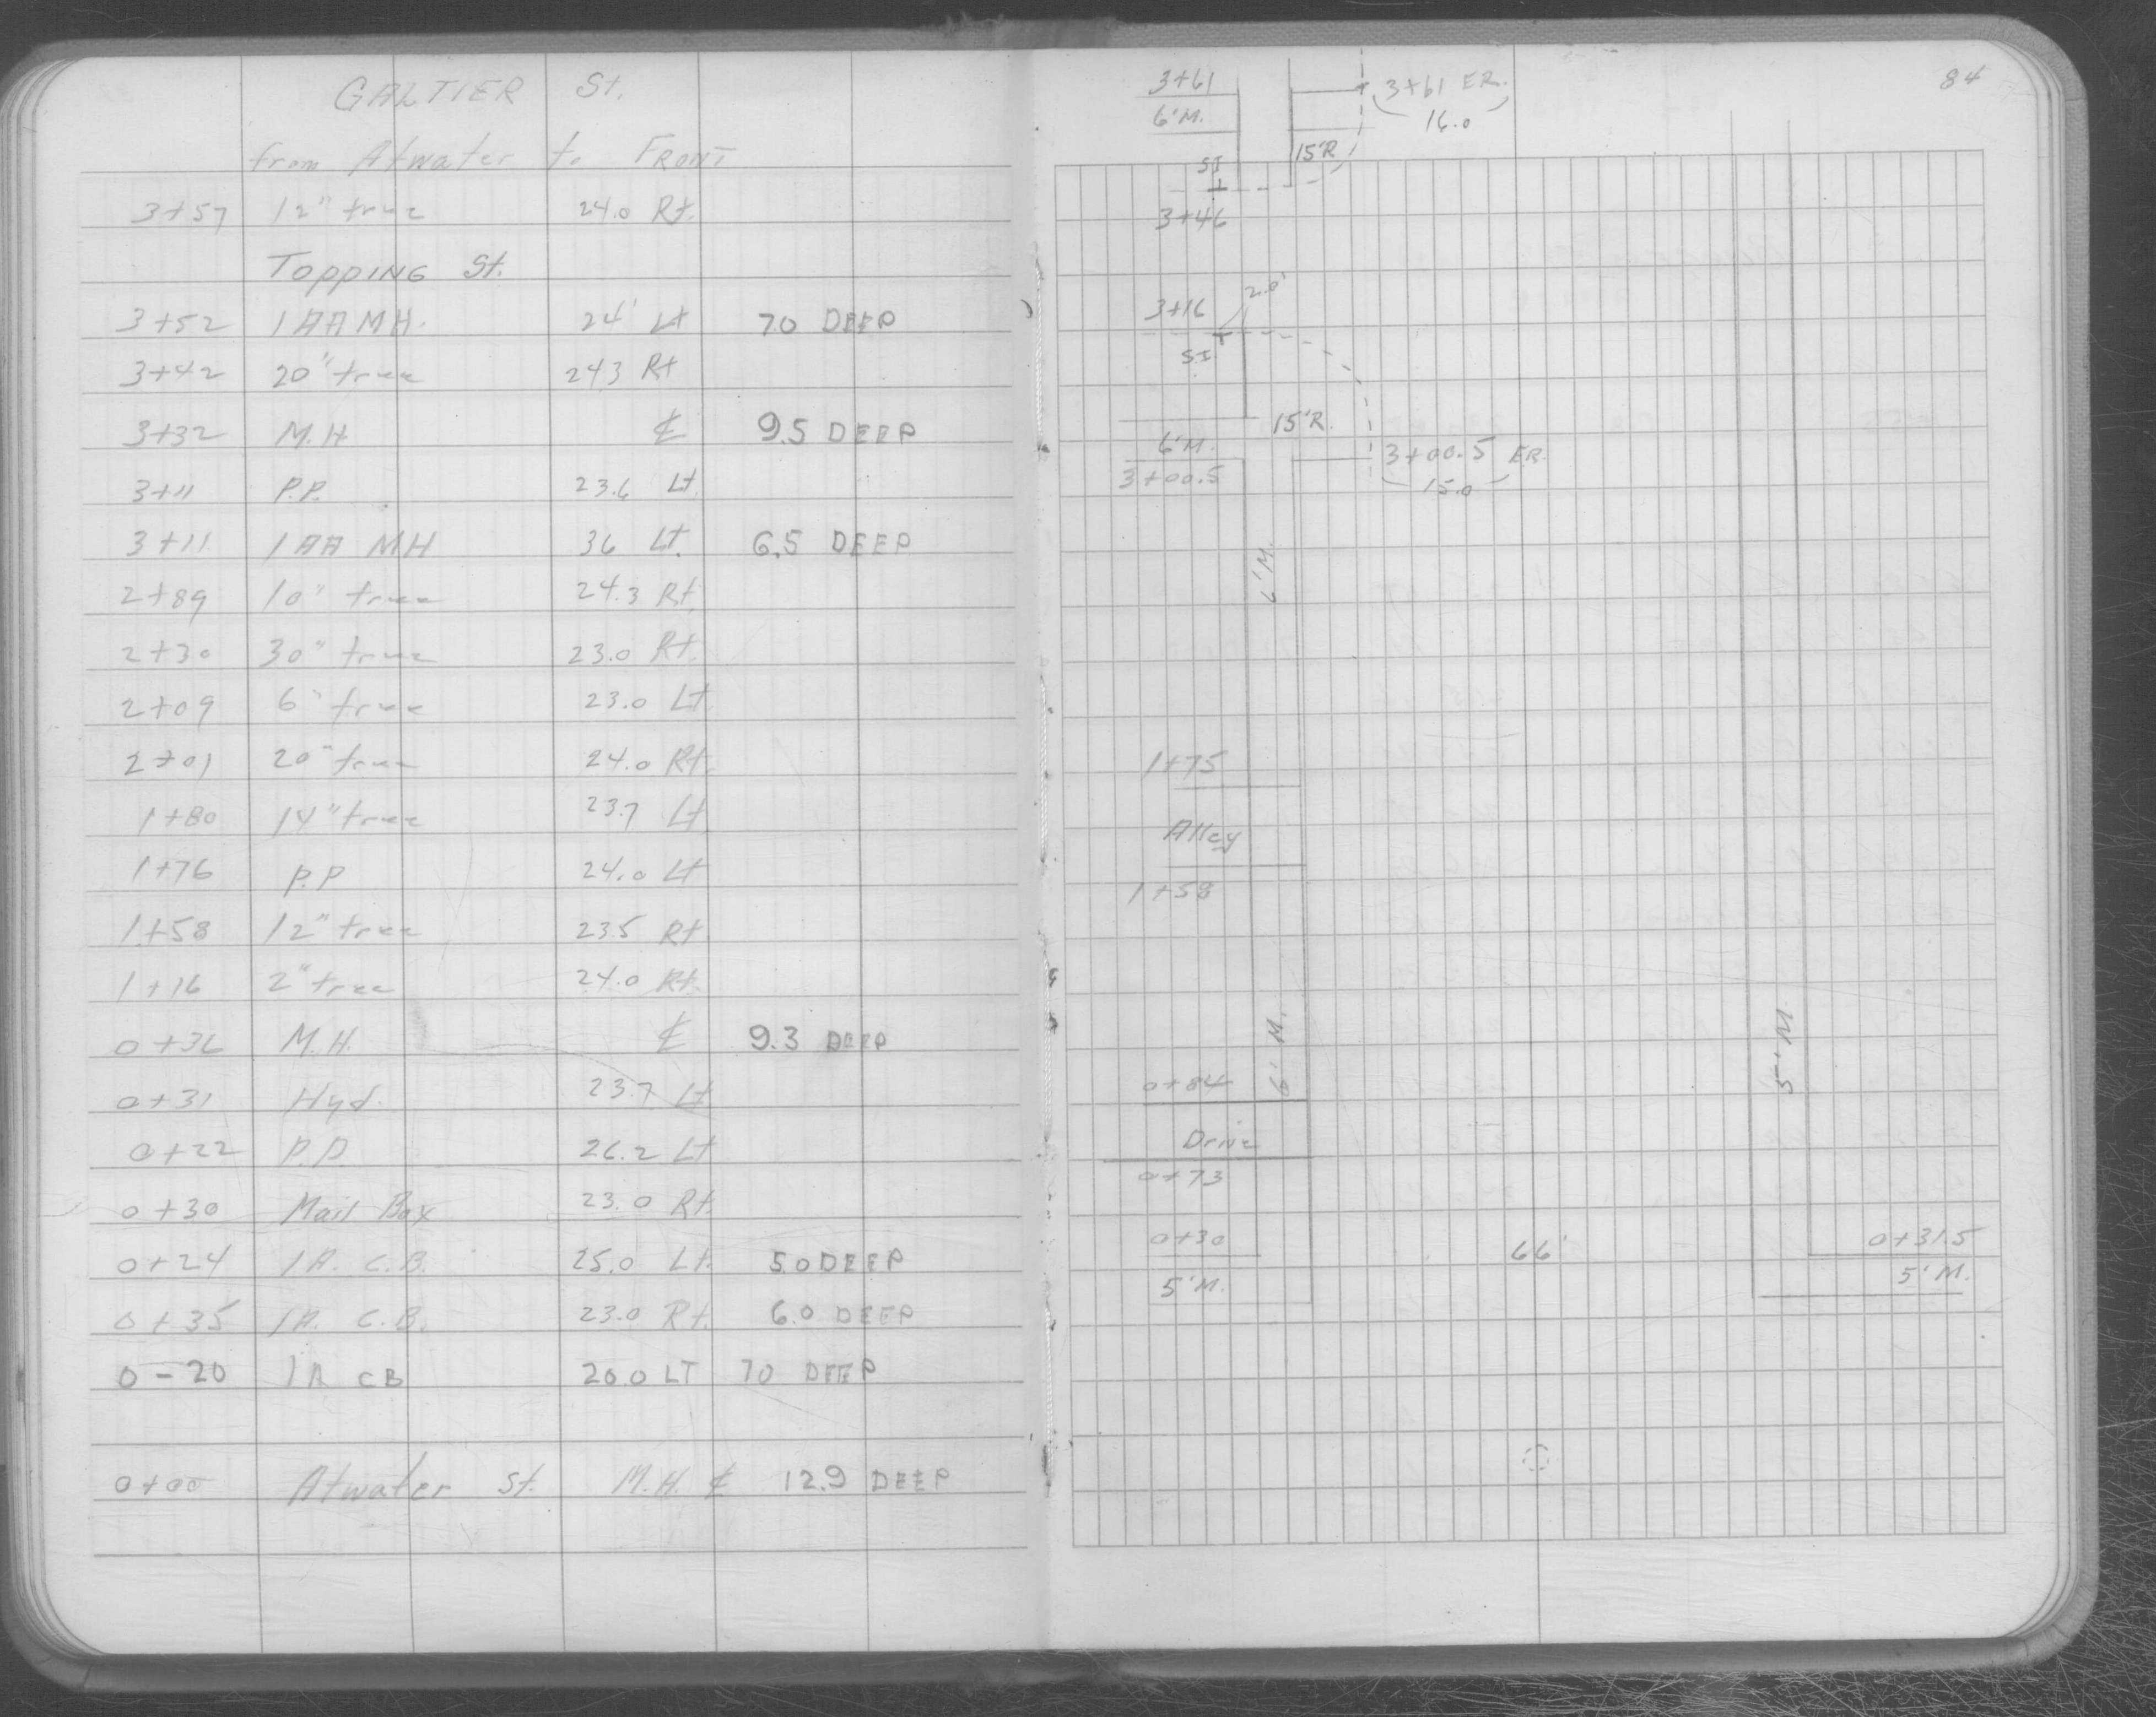 GALTIER St.
from Atwater to FRONT
3+57 12" tree 24.0 Rt.
TOPPING St.
3+52 1AA MH. 24' Lt 7.0 DEEP
3+42 20" tree 24.3 Rt
3+32 M.H. ₵ 9.5 DEEP
3+11 P.P. 23.6 Lt.
3+11 1AA MH 36 Lt. 6.5 DEEP
2+89 10" tree 24.3 Rt.
2+30 30" tree 23.0 Rt.
2+09 6" tree 23.0 Lt
2+01 20" tree 24.0 Rt.
1+80 14" tree 23.7 Lt
1+76 P.P 24.0 Lt
1+58 12" tree 23.5 Rt
1+16 2" tree 24.0 Rt.
0+36 M.H. ₵ 9.3 DEEP
0+31 Hyd. 23.7 Lt
0+22 P.P 26.2 Lt
0+30 Mail Box 23.0 Rt.
0+24 1A. C.B. 25.0 Lt. 5.0 DEEP
0+35 1A. C.B. 23.0 Rt. 6.0 DEEP
0-20 1A CB 20.0 LT 7.0 DEEP
0+00 Atwater St. M.H. ₵ 12.9 DEEP
84
3+61 3+61 ER.
6'M. 16.0
SI 15'R
3+46
3+16 2.0'
SI
15'R.
6'M. 3+00.5 ER.
3+00.5 15.0
6'M.
1+75
Alley
1+58
6' M. 5' M.
0+84
Drive
0+73
0+30 66' 0+31.5
5'M. 5'M.